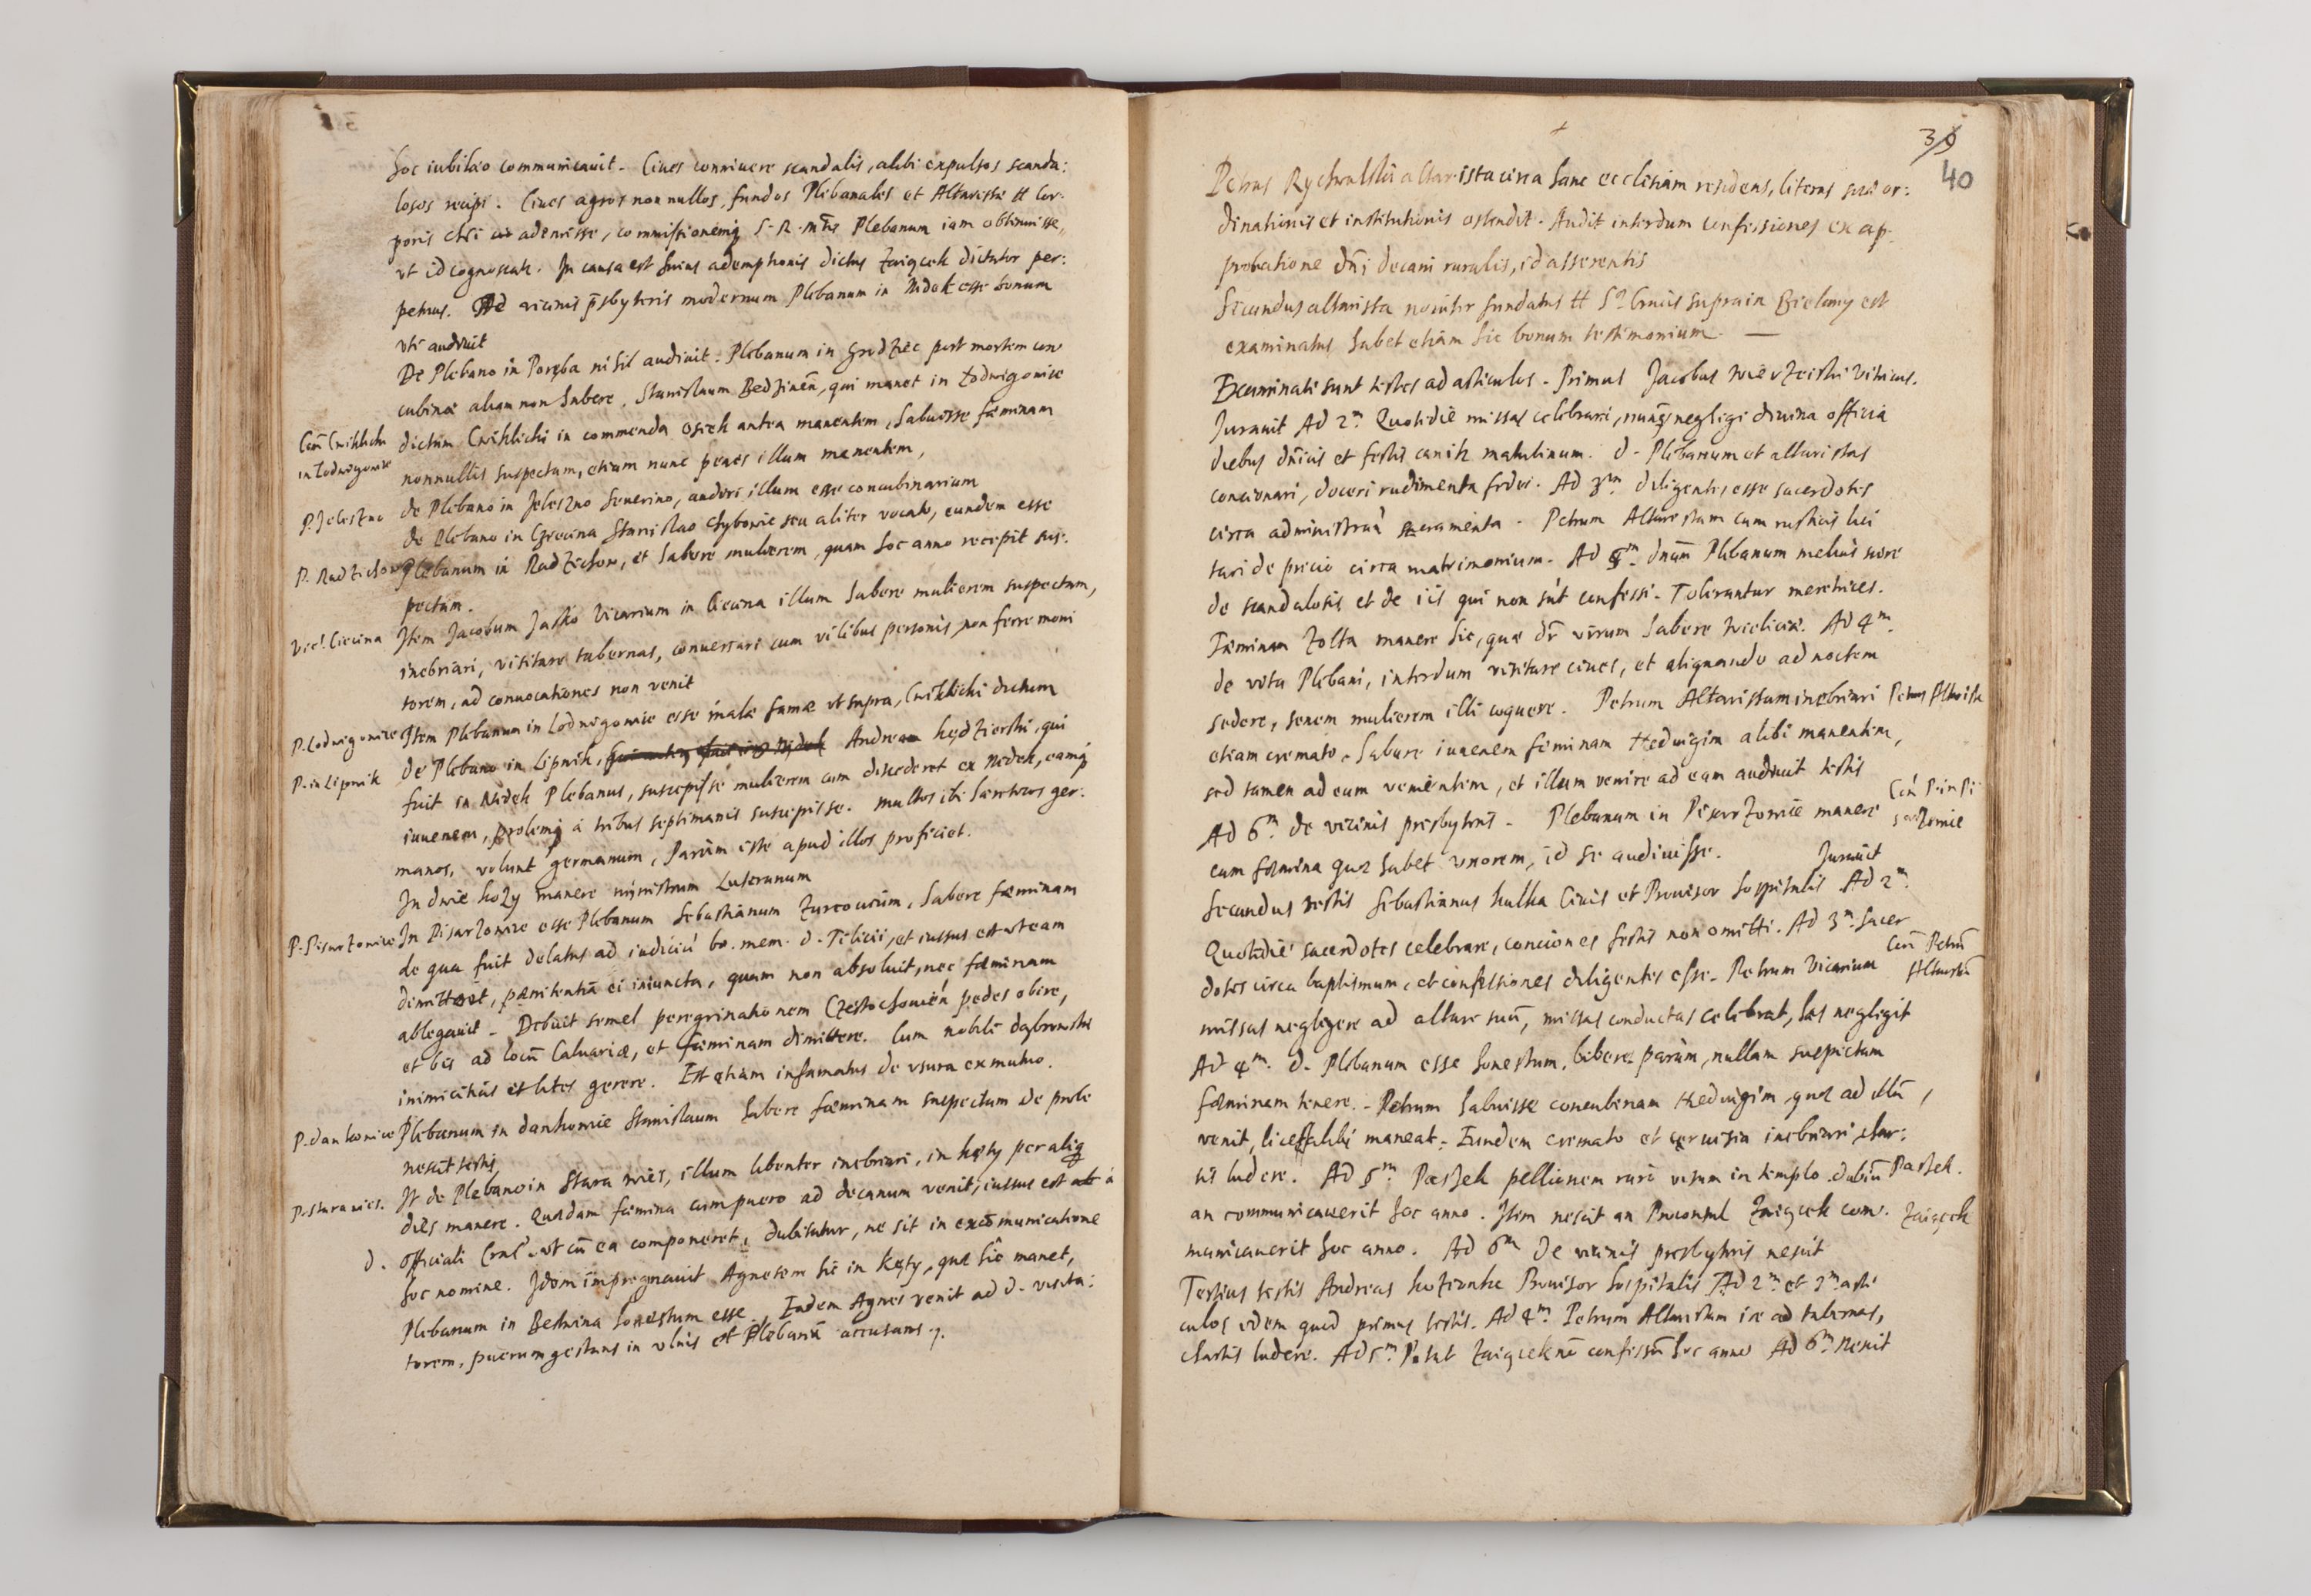 hoc iubilæo communicauit. Ciues conniuere scandalis, alibi expulsos scanda:
losos recipi. Ciues agros nonnullos, fundos Plebanales et Altaristæ tt Cor:
poris Chri ademisse, commissionemq S. R. Mtis Plebanum iam obtinuisse,
vt id cognoscat. In causa est huius ademptionis dictus Zaiącek dictator per:
petuus. Ad vicinis pr̄sbyteris modernum Plebanum in Nidek esse bonum
vti audiuit
De Plebano in Poręba nihil audiuit. Plebanum in Grodziec post mortem con
cubinæ aliam non habere. Stanislaum Bedzinen̄, qui manet in Lodwigowice
Con̄ Cwiklichi
in Lodwigowic
dictum Cwiklichi in commenda Osiek antea manentem, habuisse fæminam
nonnullis suspectam, etiam nunc penes illum manentem,
P. Jelesznо
de Plebano in Jeleszno Seuerino, audiri illum esse concubinarium
de Plebano in Czecina Stanislao Chybowic seu aliter vocato, eundem esse
P. Radzichow
Plebanum in Radziechow, et habere mulierem, quam hoc anno recepit sus:
pectam.
Vic. Ciecina
Item Jacobum Jasko Vicarium in Ciecina illum habere mulierem suspectam,
inebriari, visitare tabernas, conuersari cum vilibus personis, non ferre moni
torem, ad conuocationes non venit
P. Lodwigowice
Item Plebanum in Lodwigowice esse malæ famæ vt supra, Cwiklichi dictum
P. in Lipnik
de Plebano in Lipnik, Andream Kędzierski, qui
fuit in Nidek Plebanus, suscepisse mulierem cum discederet ex Nidek, eamq
iuuenem, prolemq à tribus septimanis suscepisse. multos ibi hæreticos ger:
manos, volunt germanum, Parùm esse apud illos proficiet.
In dwie kozy manere ministrum Luteranum
P. Pisarzowice
In Pisarzowice esse Plebanum Sebastianum Zurcouium, habere fæminam
de qua fuit delatus ad iudiciū bo. mem. d. Tilicii, et iussus est vt eam
dimitteret, pænitentia ei iniuncta, quam non absoluit, nec fæminam
ablegauit. Debuit semel peregrinationem Czestochouien̄ pedes obire,
et bis ad locū Caluariæ, et fæminam dimittere. Cum nobili dąbrowski
inimicitias et lites gerere. Est etiam infamatus de vsura ex mutuo.
P. dankowice
Plebanum in dankowice Stanislaum habere fæminam suspectam de prole
nescit testis,
P. Stara wies.
It de Plebano in Stara wies, illum libenter inebriari, in Kęty per aliq
dies manere. Quædam fæmina cum puero ad decanum venit, iussus est à
d. officiali Crac. vt cū ea componeret, dubitatur, ne sit in excōmunicatione
hoc nomine. Idem impregnauit Agnetem hic in Kęty, quæ hîc manet,
Plebanum in Bestwina honestum esse. Eadem Agnes venit ad d. visita:
torem, puerum gestans in vlnis et Plebanū accusans.
39
40
Petrus Rychwalski altarista circa hanc ecclesiam residens, literas suæ or:
dinationis et institutionis ostendit. Audit interdum confessiones ex ap:
probatione dn̄i decani ruralis, id asserentis
Secundus altarista nouiter fundatus tt S. Crucis supra in Bielany est
examinatus habet etiam hic bonum testimonium.
Examinati sunt testes ad articulos. Primus Jacobus Vitricus.
Jurauit Ad 2m Quotidiè missas celebrari, nunq̄ negligi diuina officia
diebus dn̄icis et festis canitur matutinum. d. Plebanum et altaristas
concionari, doceri rudimenta fidei. Ad 3m diligentes esse sacerdotes
circa administranda sacramenta. Petrum Altaristam cum rusticis lici
tari de precio circa matrimonium. Ad 5m dnum Plebanum melius scire
de scandalosis et de iis qui non sūt confessi. Tolerantur meretrices.
Fæminam Zolta manere hic, quæ dr̄ virum habere Wieliciæ. Ad 4m
de vita Plebani, interdum visitare ciues, et aliquando ad noctem
sedere, senem mulierem illi coquere. Petrum Altaristam inebriari
Petrus Altarista
etiam cremato. Habere iuuenem fæminam Hedwigim alibi manentem,
sed tamen ad eum venientem, et illum venire ad eam audiuit testis
Ad 6m de vicinis presbyteris. Plebanum in Pisarzowice manere
Con̄ P. in Pi
sarzowice
cum fæmina quæ habet vxorem, id se audiuisse.
Secundus testis Sebastianus kulka Ciuis et Prouisor hospitalis Jurauit Ad 2m
Quotidiè sacerdotes celebrare, conciones festis non omitti. Ad 3m sacer
dotes circa baptismum, et confessiones diligentes esse. Petrum Vicarium
Con̄ Petrū
Altaristā
missas negligere ad altare suū, missas conductas celebrat, has negligit
Ad 4m. d. Plebanum esse honestum, bibere parùm, nullam suspectam
fæminam tenere. Petrum habuisse concubinam Hedwigim, quæ ad illū
venit, licet alibi maneat. Eundem cremato et ceruisia inebriari char:
tis ludere. Ad 5m Paszek pellionem rarò visum in templo dubiū
Paszek.
an communicauerit hoc anno. Item nescit an Proconsul Zaiącek com:
Zaiącek
municauerit hoc anno. Ad 6m De vicinis presbyteris nescit
Tertius testis Andreas Prouisor hospitalis Ad 2m et 3m arti
culos idem quod primus testis. Ad 4m Petrum Altaristam ire ad tabernas,
chartis ludere. Ad 5m Putat Zaiącek nō confessū hoc anno Ad 6m nescit